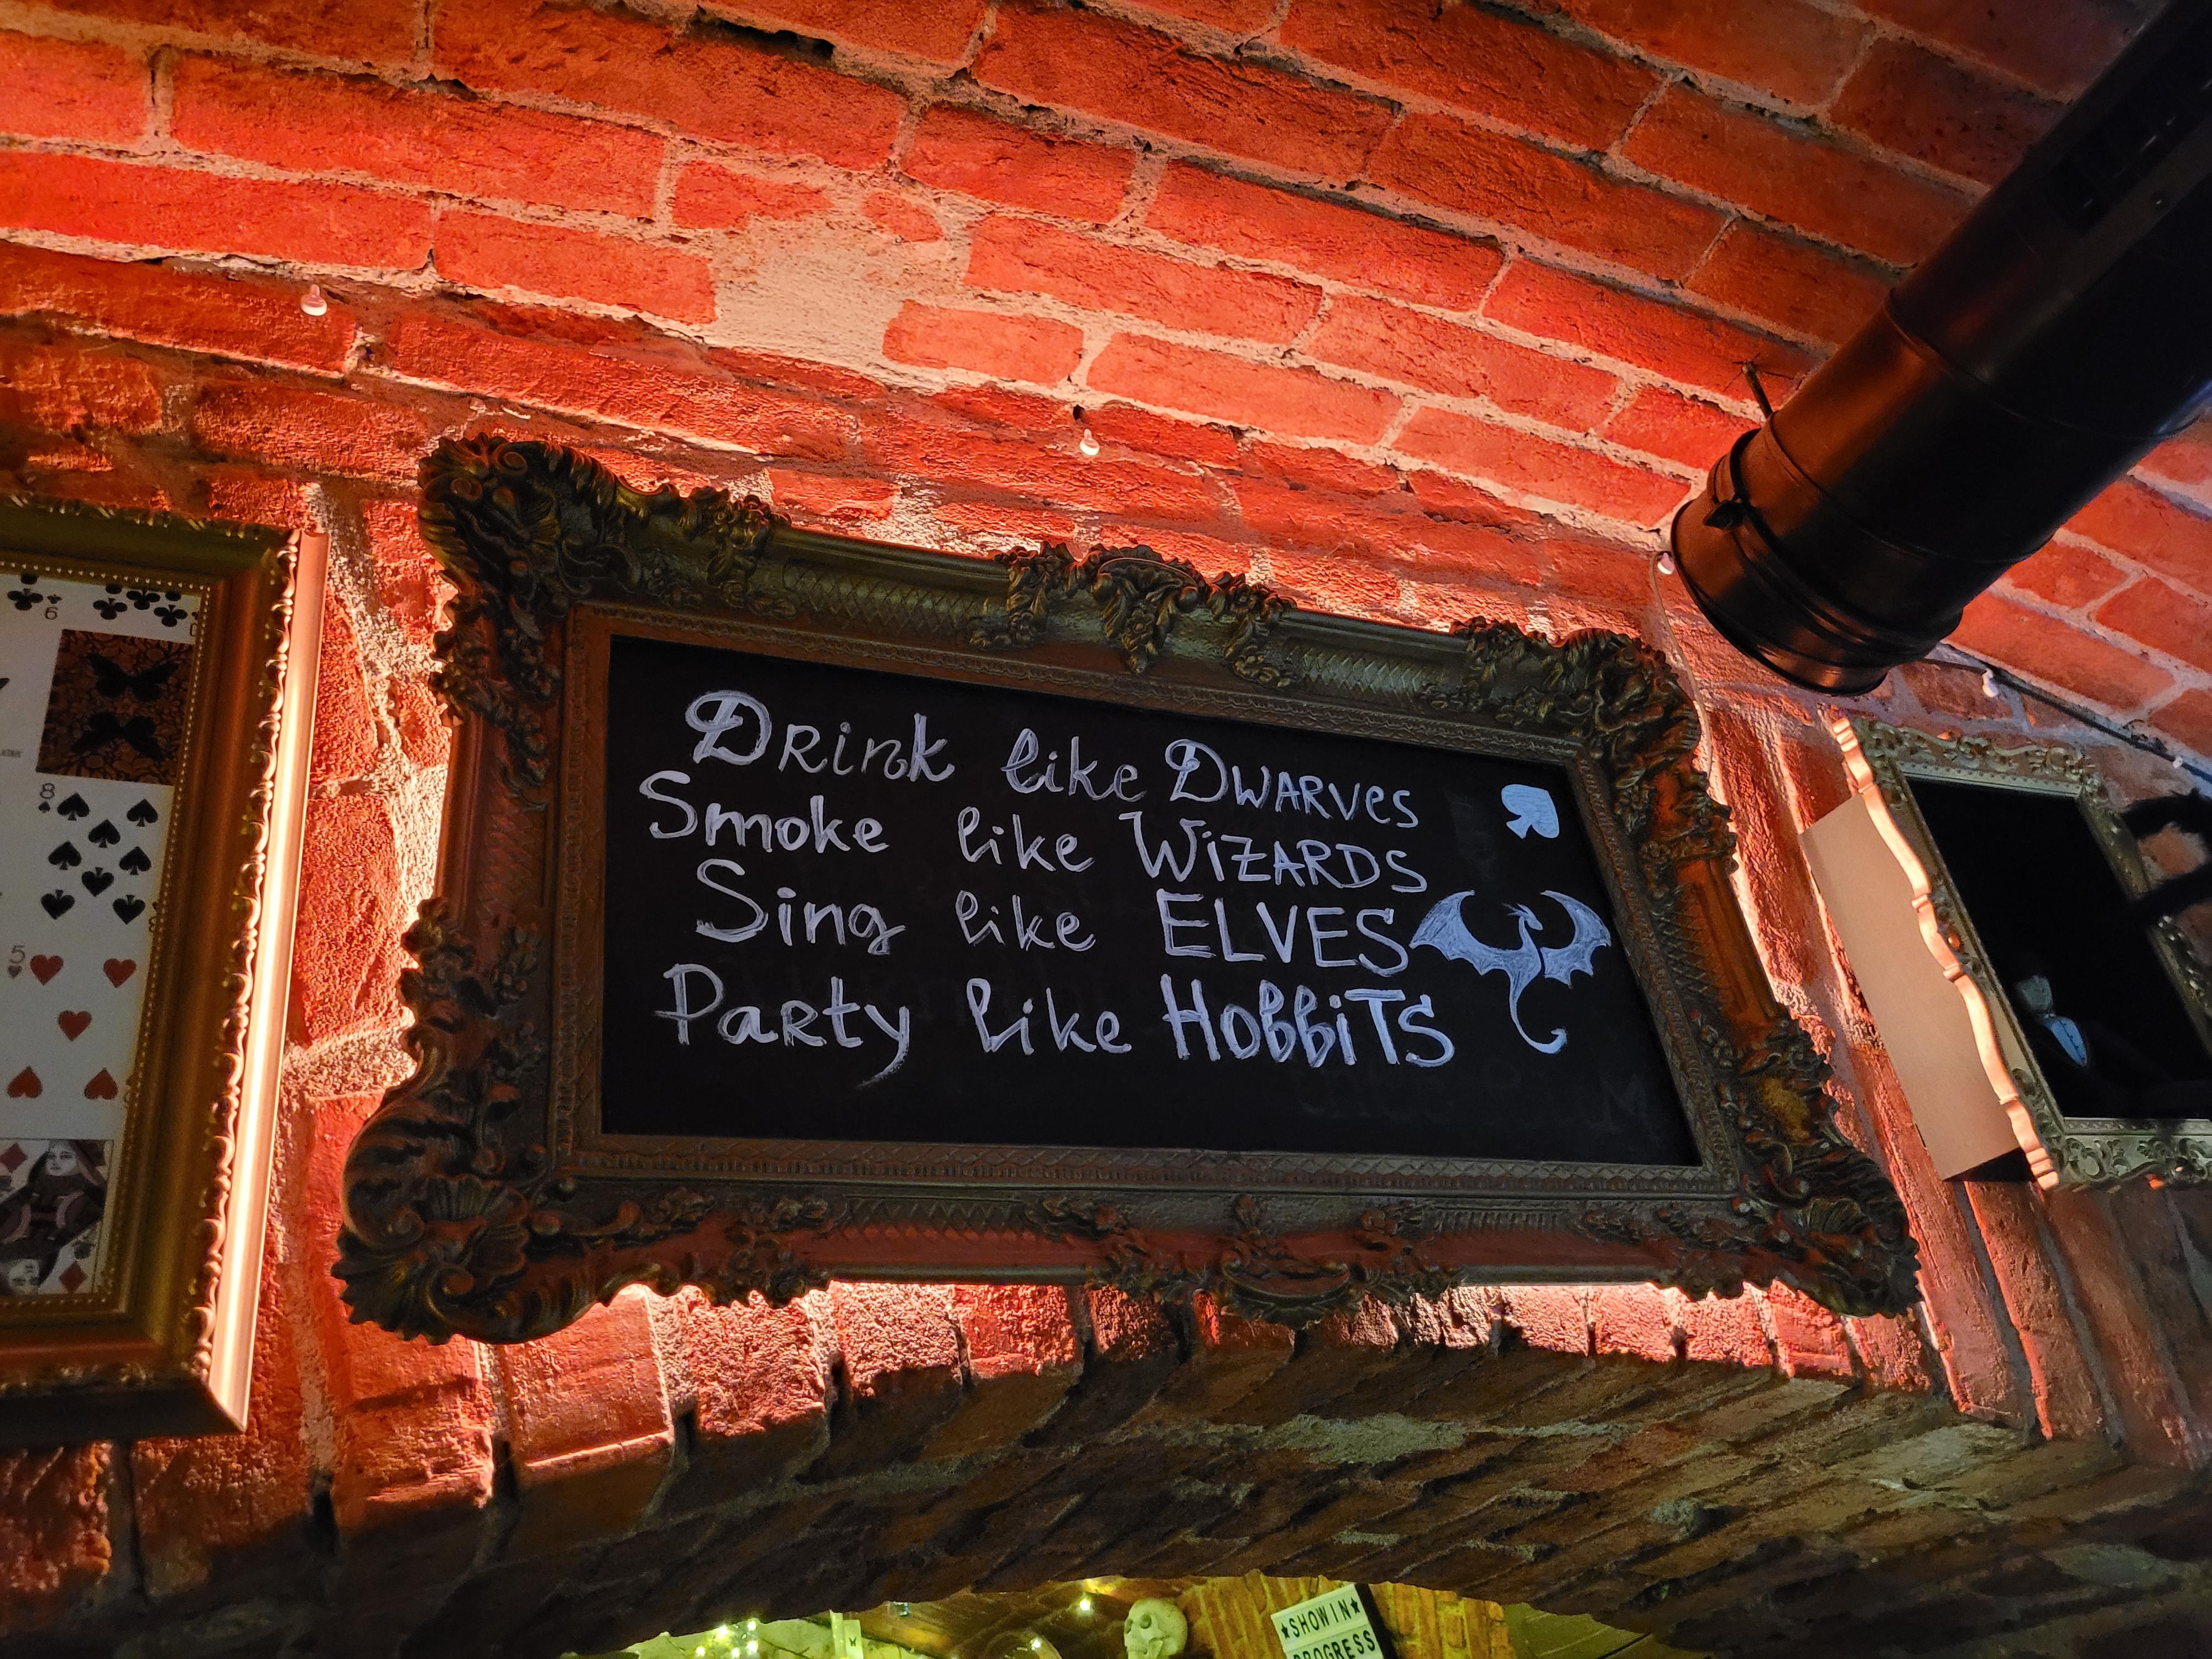 Drink like Dwarves
Smoke like WiZARDS
Sing like ELVES
Party like HobbiTS
6
8
5
SHOW IN
PROGRESS